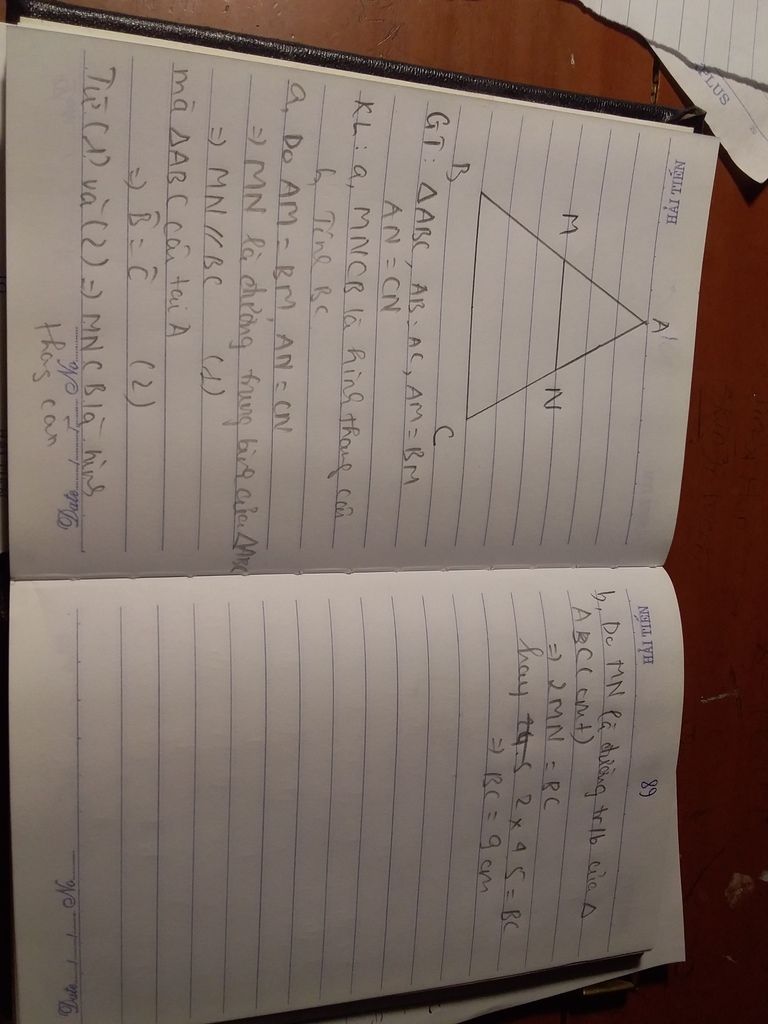 HẢI TIẾN
A
M
N
B
C
GT: ΔABC, AB = AC, AM = BM
AN = CN
KL: a, MNCB là hình thang cân
b, Tính BC
a, Do AM = BM, AN = CN
=> MN là đường trung bình của ΔABC
=> MN // BC (1)
mà ΔABC cân tại A
=> B̂ = Ĉ (2)
Từ (1) và (2) => MNCB là hình
thag cân
No. Date
HẢI TIẾN
89
b, Do MN là đường tr/b của Δ
ABC (cmt)
=> 2MN = BC
hay 2 x 4 5 = BC
=> BC = 9 cm
No. Date